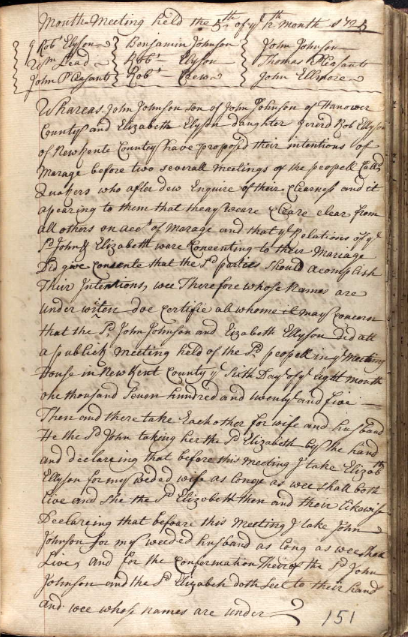 Month Meeting held the 5th of ye 7th month 1725
Robt Elyson Benjamin Johnson John Johnson
Wm Lead Robt Elyson Thomas Pleasants
John Pleasants Robt Crew John Ellmore
Whareas John Johnson son of John Johnson of Hanover
County and Elizabeth Elyson daughter Gerard Rob Ellyson
of New Kente County have proposd their intentions of
Marage before two severall Meetings of the people Calld
Quakers who after dew Enquire of their Clearness and it
apearing to them that theay weare Cleare from
all others on acot of Marage and that ye Relations of ye
sd John & Elizabeth ware Consenting to their Mariage
Did give Consente that the sd parties Should acomplish
Their Intentions, wee Therefore whose Names are
under witen doe Certifie all whome it may Concern
that the sd John Johnson and Elizabeth Ellyson did att
a publick meeting held of the sd people in ye Meeting
House in New Kent County ye Sixth Day of ye eight month
one thousand Seven hundred and twenty and five
There and there take Each other for wife and husband
He the sd John taking her the sd Elizabeth by the hand
and declareing that before this meeting I take Elizabth
Ellyson for my weded wife as long as wee shall both
live and she the sd Elizabeth then and their likewise
Declareing that before this Meeting I take John
Johnson for my weeded husband as long as wee shall
Live, and for the Conformation Thereof the sd John
Johnson and the sd Elizabeth doth Set to their hand
and wee whose names are under
151